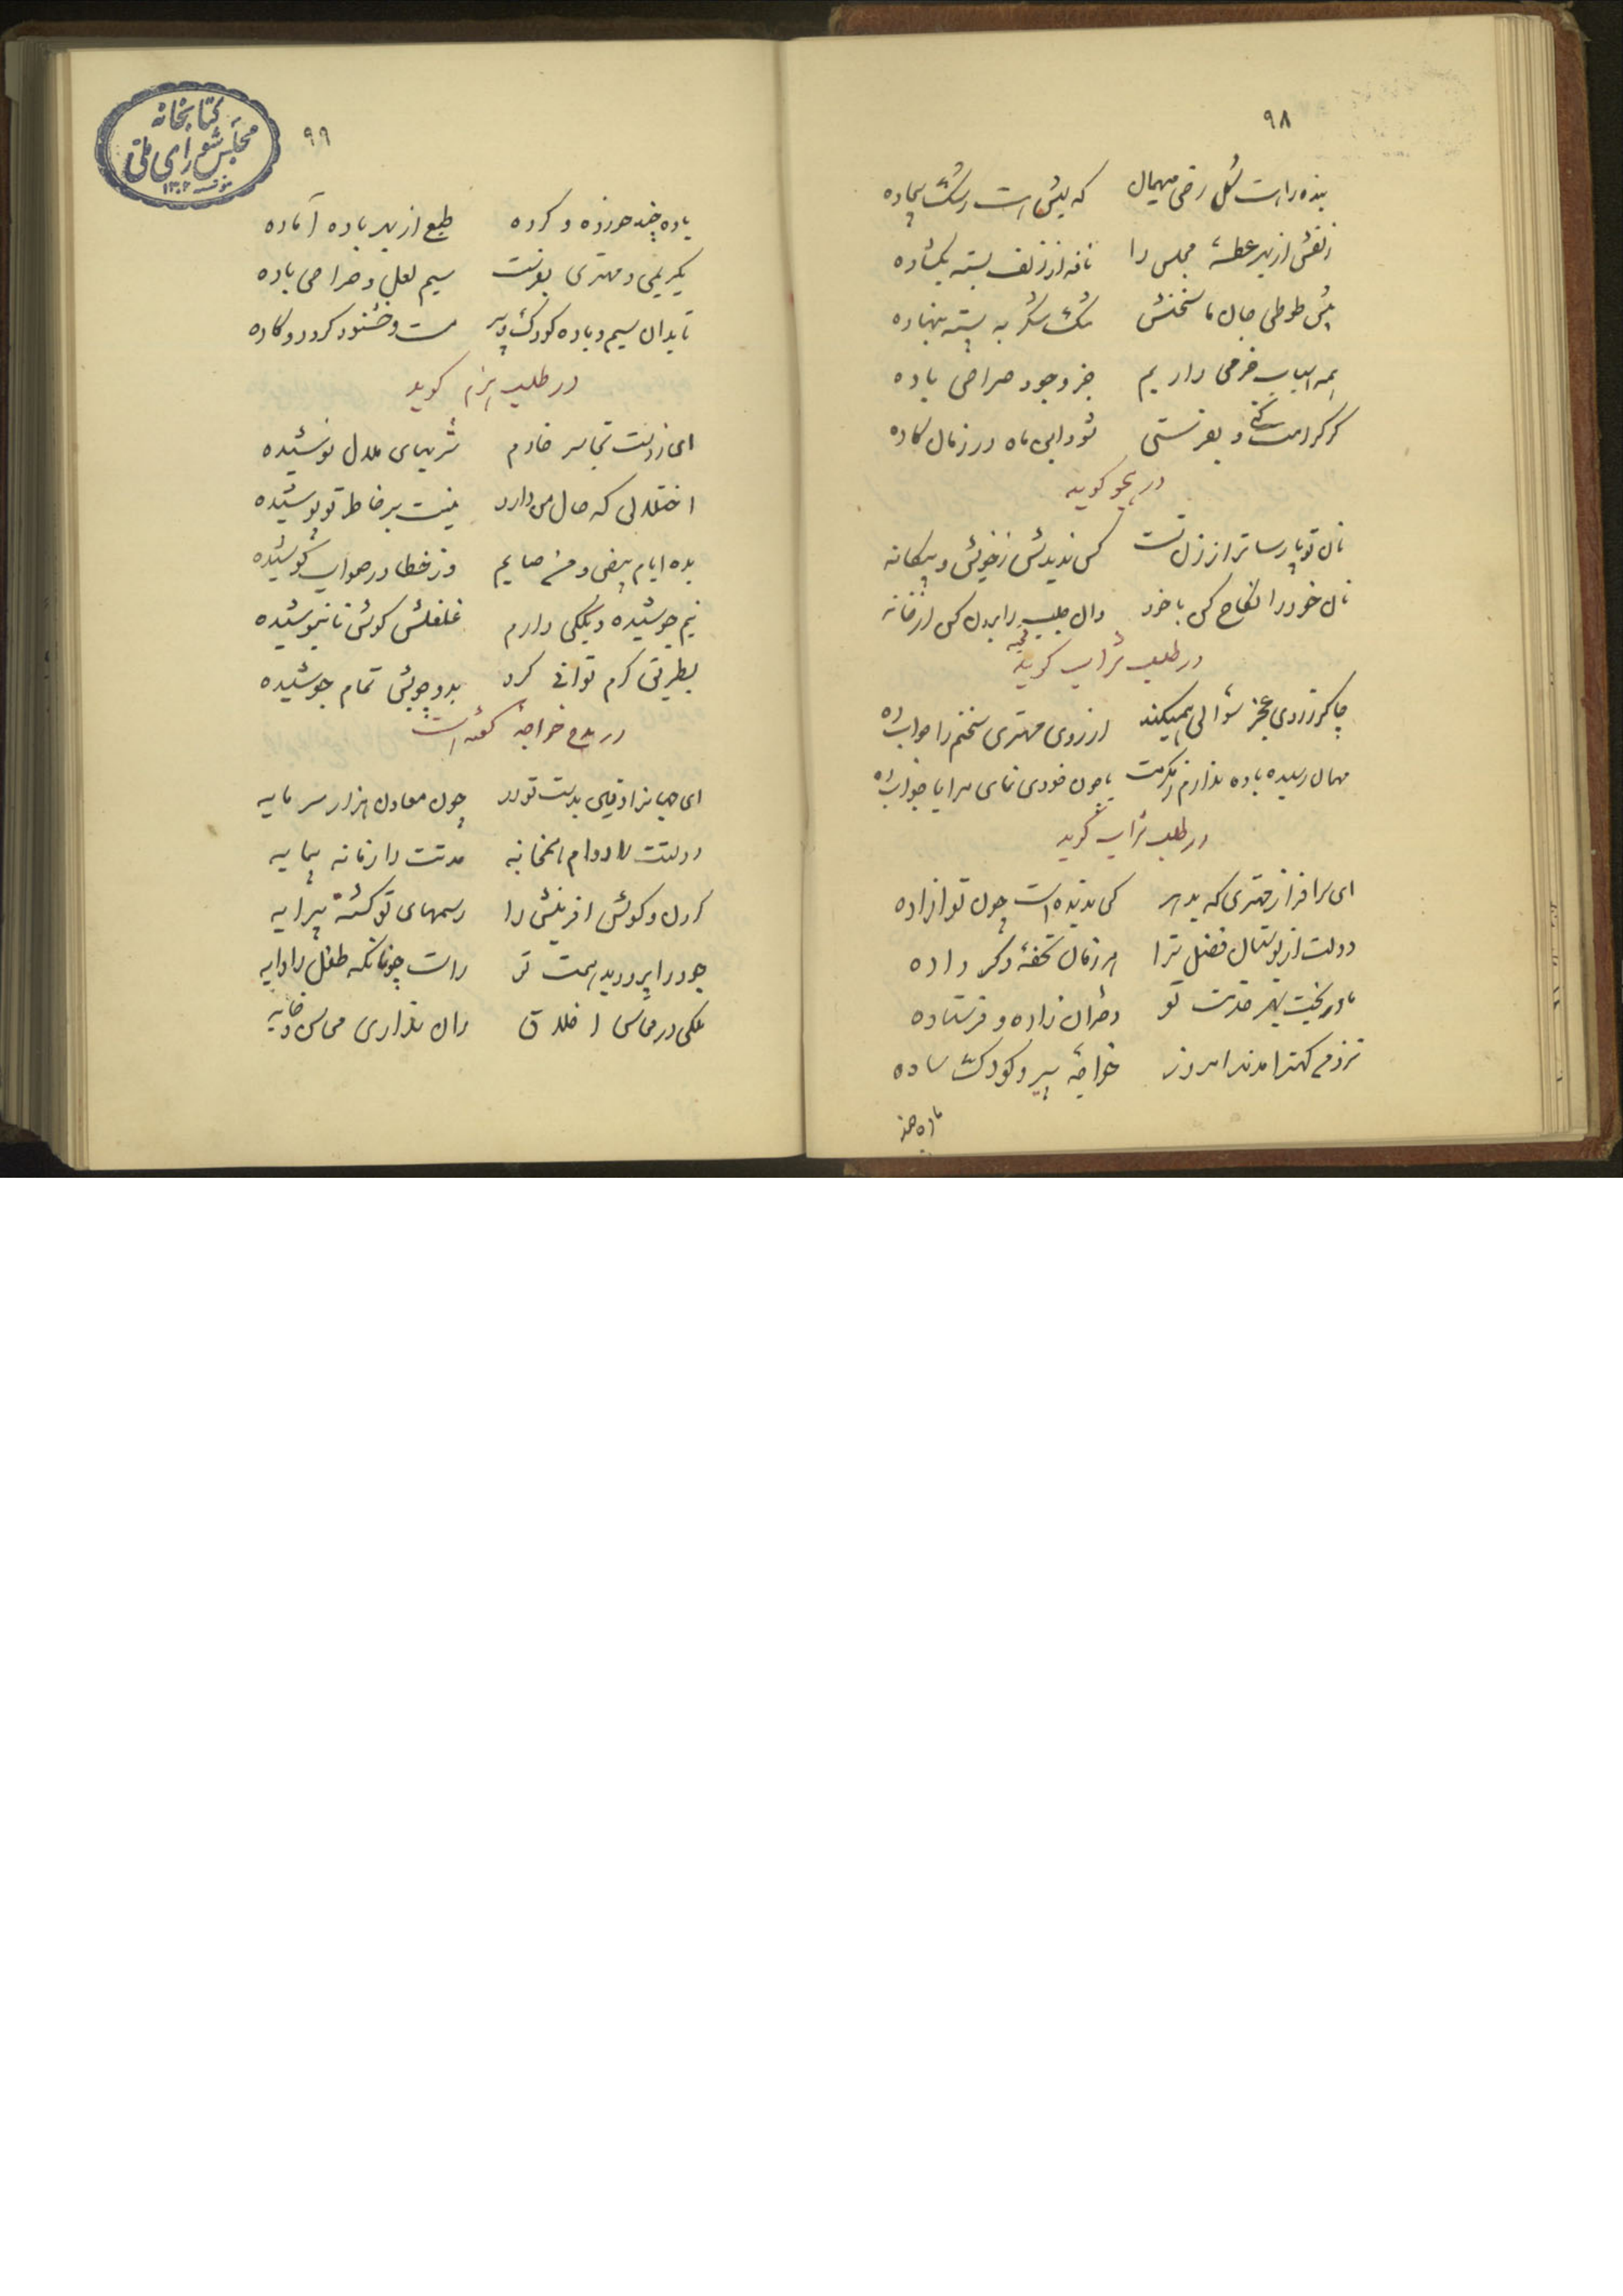 ۹۸
بنده را است گل رخی مهمان که پیش است رشک بیجاده
زلفش از بهر عطسهٔ مجلس را نافه از زلف بسته بگشاده
پیش طوطی جان ما سخنش تنگ شکر به پسته بنهاده
همه اسباب خرمی داریم جز وجود صراحی باده
گر کرامت کنی و بفرستی شود این ماه در زمان گاده
در هجو گوید
نان تو پارساتر از زن تست کس ندیدش ز خویش و بیگانه
نان خود را نکاح کن با خود وان جلب را برون کن از خانه
در طلب شراب گوید
چاکر ز روی عجز سؤالی همیکند از روی مهتری سخنم را جواب ده
مهمان رسیده باده ندارم ز مکرمت یا چون خودی نمای مرا یا شراب ده
در طلب شراب گوید
ای سرافراز مهتری که بدهر کس ندیده است چون تو آزاده
دولت از بوستان فضل ترا هر زمان تحفهٔ دگر داده
مادر بخت بهر خدمت تو دختران زاده و فرستاده
نزد من کهتر آمدند امروز خواجهٔ پیر و کودک ساده
باده چند
۹۹
کتابخانه مجلس شورای ملی
باده چند هرزه و کرده طمع از بهر باده آماده
بکریمی و مهتری بفرست سیم لعل و صراحی باده
تا بدان سیم و باده کودک و پیر مست و خشنود گردد و گاده
در طلب هیزم گوید
ای ز دست تجاسر خادم شربهای ملال نوشیده
اختلالی که حال من دارد نیست بر خاطر تو پوشیده
بده ایام بیض و من صایم وز خطا در صواب کوشیده
نیم جوشیده دیگکی دارم غلغلش گوش نانیوشیده
بطریق کرم توانی کرد بدو چوبش تمام جوشیده
در مدح خواجه گفته است
دولتت را دوام همخانه مدتت را زمانه همسایه
گردن و گوش آفرینش را رسمهای تو گشته پیرایه
جود را پرورید همت تو راست چونانکه طفل را دایه
ملکی در محاسن اخلاق زان نداری محاسن و خایه